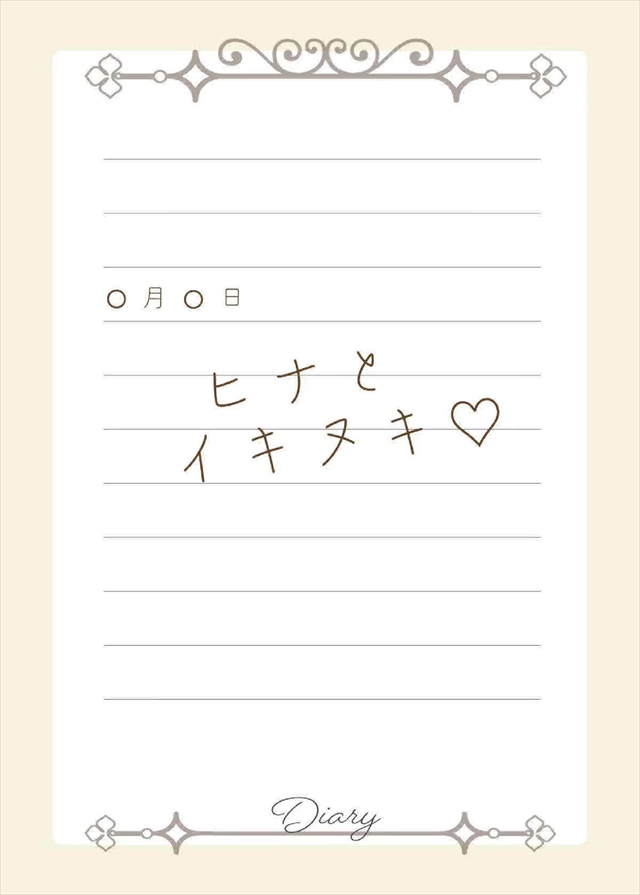 〇月〇日
ヒナと
イキヌキ♡
Diary